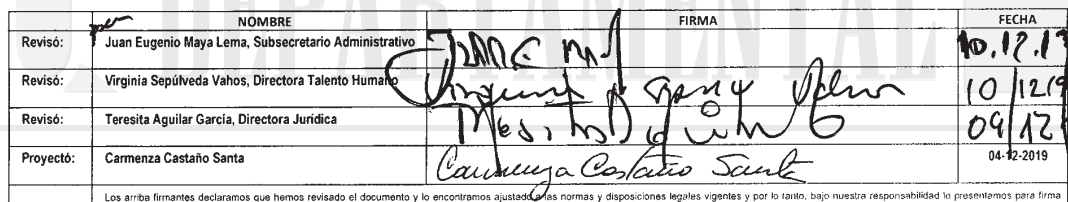 DEPARTAMENTAL
NOMBRE FIRMA FECHA
Revisó: Juan Eugenio Maya Lema, Subsecretario Administrativo 10.12.19
Revisó: Virginia Sepúlveda Vahos, Directora Talento Humano 10/12/19
Revisó: Teresita Aguilar García, Directora Jurídica 09/12
Proyectó: Carmenza Castaño Santa Carmenza Castaño Santa 04-12-2019
Los arriba firmantes declaramos que hemos revisado el documento y lo encontramos ajustado a las normas y disposiciones legales vigentes y por lo tanto, bajo nuestra responsabilidad lo presentamos para firma